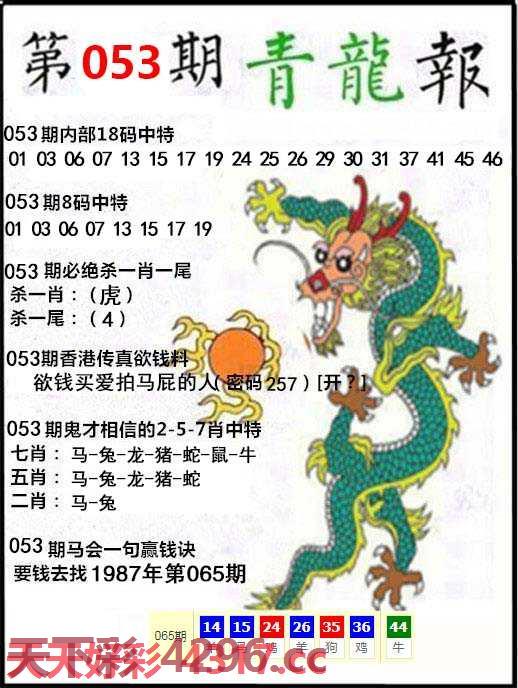 第053期青龍報
053期内部18码中特
01 03 06 07 13 15 17 19 24 25 26 29 30 31 37 41 45 46
053期8码中特
01 03 06 07 13 15 17 19
053期必绝杀一肖一尾
杀一肖:(虎)
杀一尾:(4)
053期香港传真欲钱料
欲钱买爱拍马屁的人(密码257)[开?]
053期鬼才相信的2-5-7肖中特
七肖:马-兔-龙-猪-蛇-鼠-牛
五肖:马-兔-龙-猪-蛇
二肖:马-兔
053期马会一句赢钱诀
要钱去找1987年第065期
065期 14 15 24 26 35 36 44
鸡 羊 狗 鸡 牛
天天好彩4296.cc